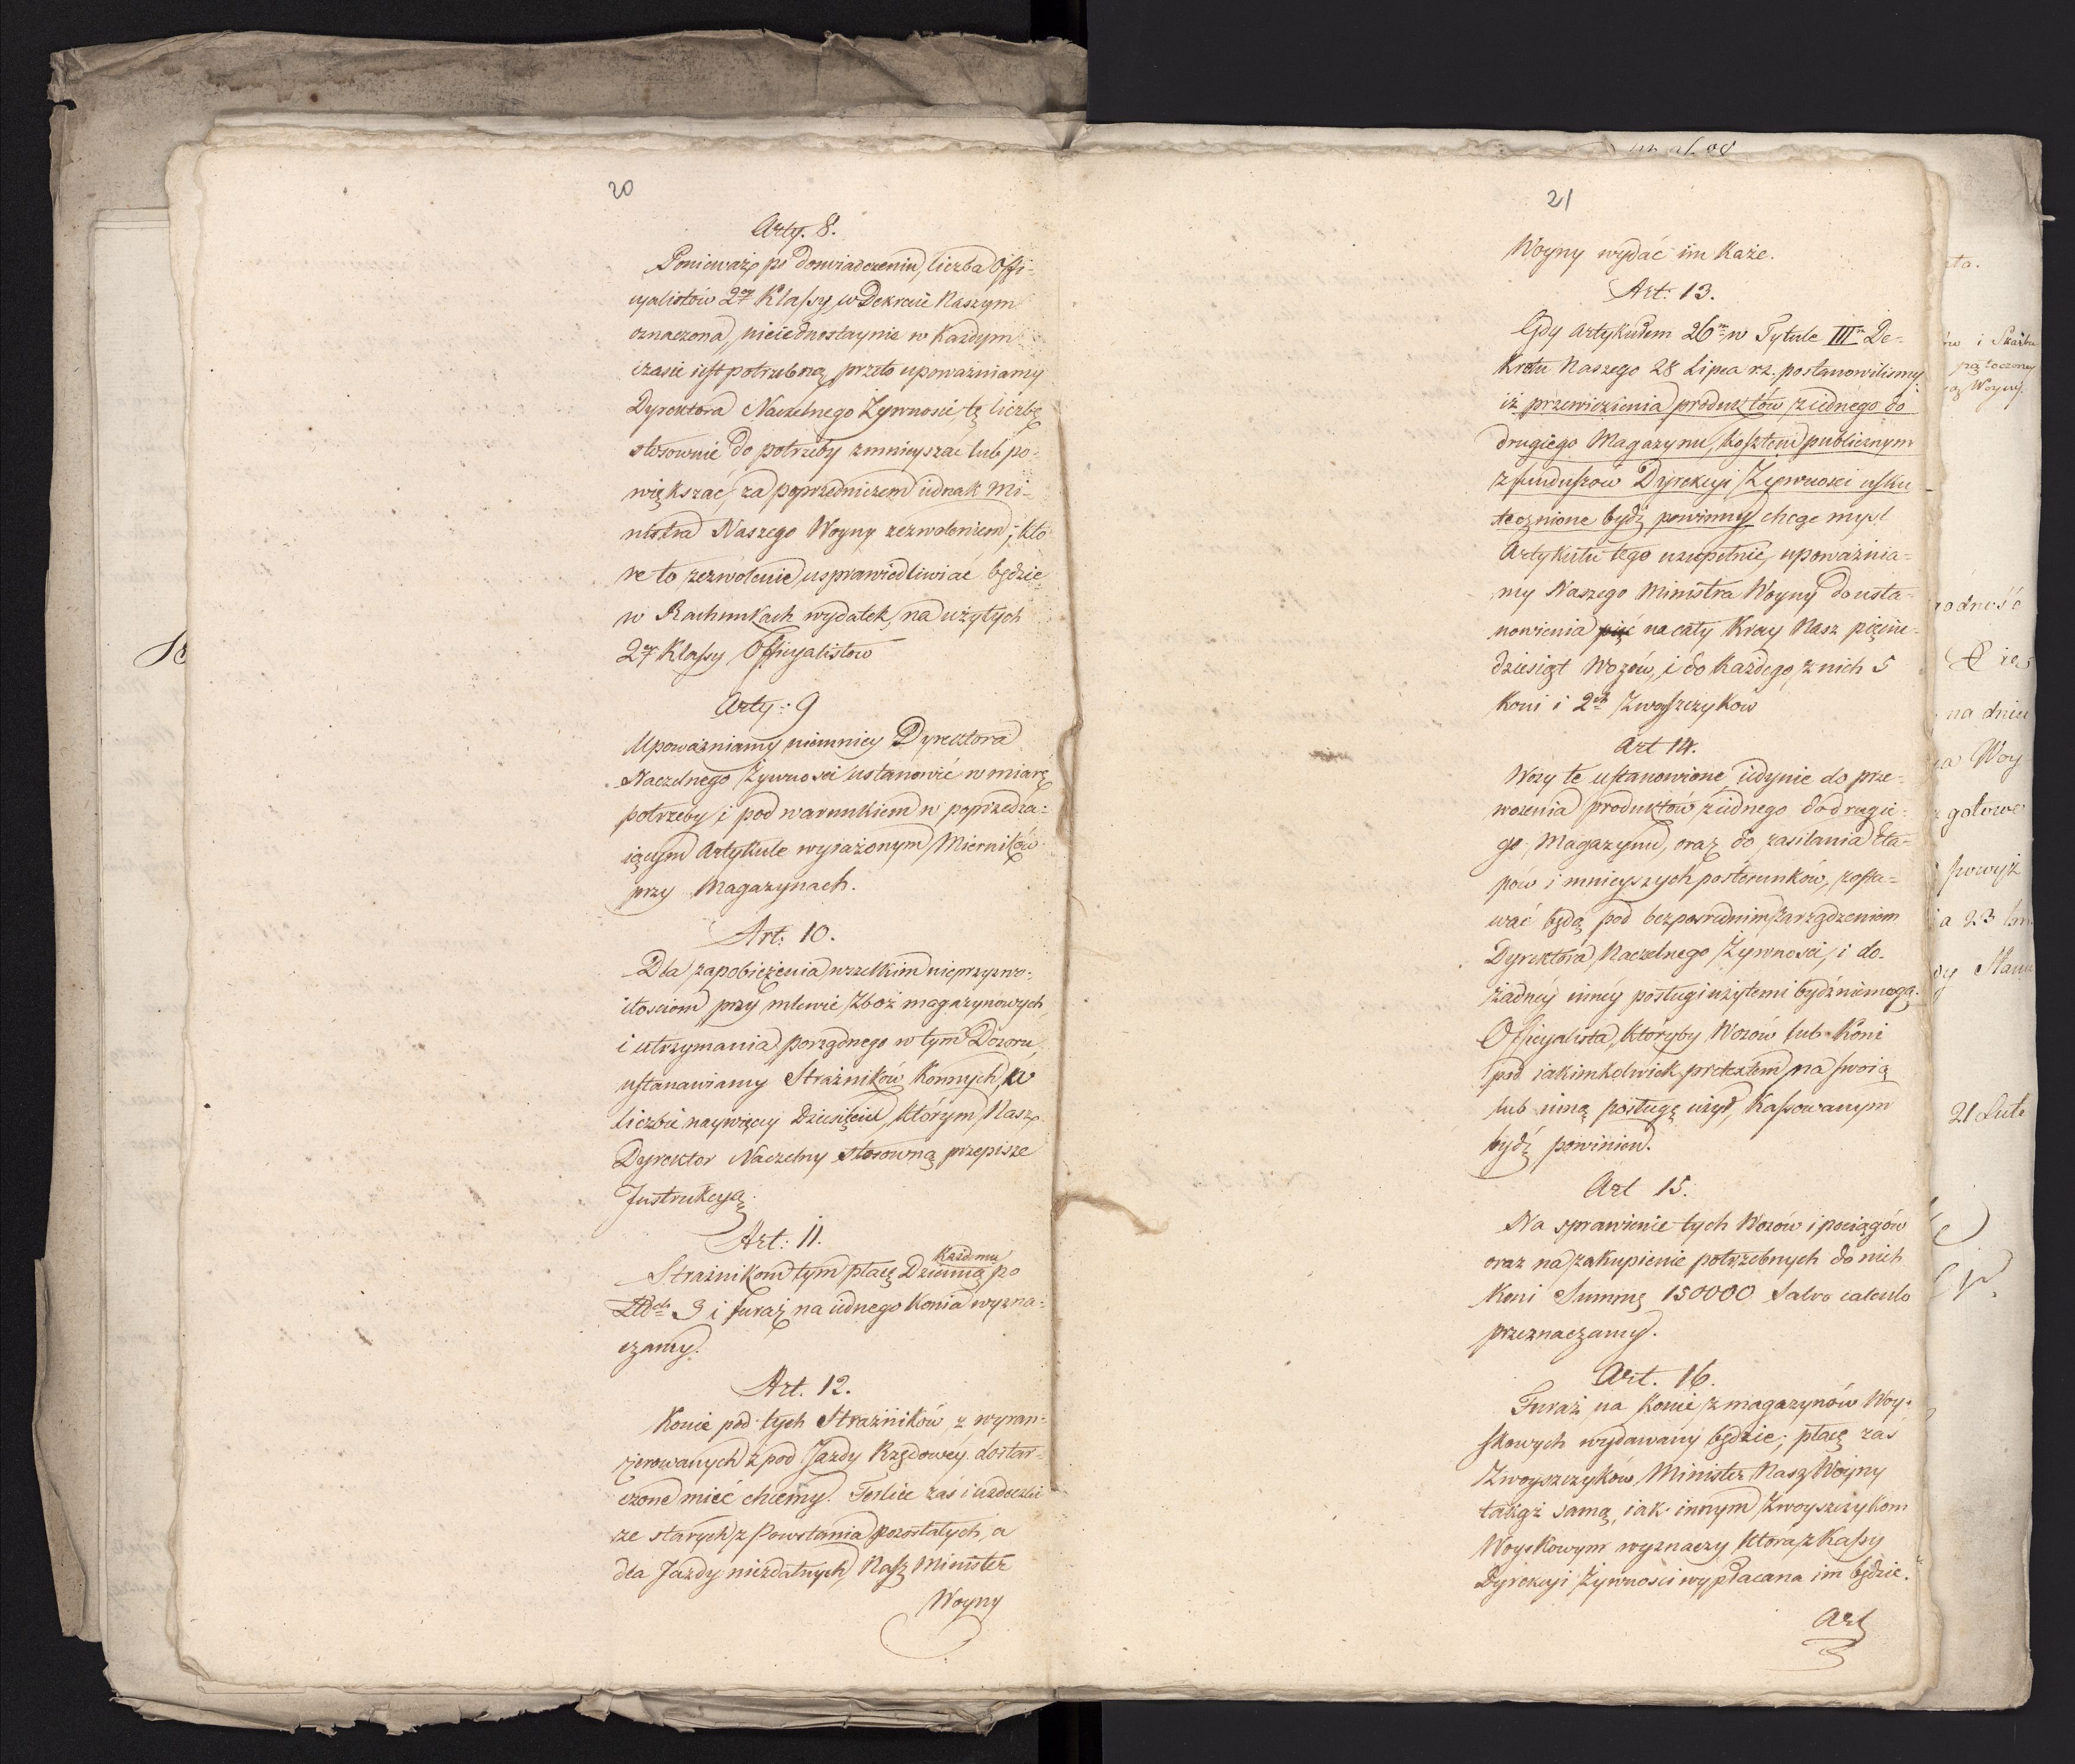 20
Arty. 8.
Ponieważ po doswiadczeniu, liczba Offi-
cyalistów 2ey Klassy w Dekrecie Naszym
oznaczona, nieiednostaynie w Każdym
czasie iest potrzebną, przeto upoważniamy
Dyrektora Naczelnego Żywnosci, tę liczbę
stosownie do potrzeby zmnieyszać lub po-
większać, za poprzedniczem iednak Mi-
nistra Naszego Woyny zezwoleniem; któ
re to zezwolenie, usprawiedliwiać będzie
w Rachunkach wydatek, na użytych
2ey Klassy Officyalistow
Arty: 9
Upoważniamy niemniey Dyrektora
Naczelnego Żywnosci ustanowić w miarę
potrzeby i pod warunkiem w poprzedza-
iącym Artykule wyrażonym, Mierników
przy Magazynach.
Art: 10.
Dla zapobieżenia wszelkim nieprzyzwo-
itosciom przy mlewie Zboż magazynowych,
i utrzymania porządnego w tym Dozoru
ustanawiamy Strażników Konnych, w
liczbie naywięcy Dziesięciu, którym Nasz
Dyrektor Naczelny stosowną przepisze
Instrukcyą.
Art: 11.
Każdemu
Strażnikom tym płacę Dzienną po
3 i furaż na iednego Konia wyzna-
czamy.
Art. 12.
Konie pod tych Strażników, z wyran-
zierowanych z pod Jazdy Rzędowey dostar-
czone mieć chcemy. Terlice zaś i uzdeczki
ze starych z Powstania pozostałych, a
dla Jazdy niezdatnych, Nasz Minister
Woyny
21
Woyny wydać im Każe.
Art: 13.
Gdy Artykułem 26m w Tytule IIIm De-
Kretu Naszego 28 Lipca r.z. postanowilismy
iż przewiezienia produktów z iednego do
drugiego Magazynu, kosztem publicznym
z funduszow Dyrekcyi Żywnosci usku
tecznione bydź powinny, chcąc mysl
Artykułu tego uzupełnić, upoważnia-
my Naszego Ministra Woyny do usta-
nowienia pięć na cały Kray Nasz pięcic-
dziesiąt Wozów, i do Każdego z nich 5
Koni i 2ch Zwoszczykow
Art 14.
Wozy te ustanowione iedynie do prze-
wozenia produktów z iednego do drugie-
go, Magazynu, oraz do zasilania Eta-
pów i mnieyszych posterunków, zosta-
wać będą pod bezposrednim Zarządzeniem
Dyrektora Naczelnego Żywnosci, i do
żadney inney posługi użytemi bydź niemogą.
Officyalista, któryby Wozów lub Koni
pod iakimkolwiek pretextem na swoią
lub inną posługę użył, Kassowanym
bydź powinien.
Art 15.
Na sprawienie tych Wozów i pociągów
oraz na zakupienie potrzebnych do nich
Koni Summę 150000 Salvo calculo
przeznaczamy.
Art. 16.
Furaż na Konie, z magazynów Woy-
skowych wydawany będzie; płacę zas
Zwoyszczyków, Minister Nasz Woyny
takąż samą, iak innym Zwoyszczykom
Woyskowym wyznaczy, która z Kassy
Dyrekcyi Żywnosci wypłacana im będzie.
Art
na dniu
Woy
gotowe
powyż
21 Lute